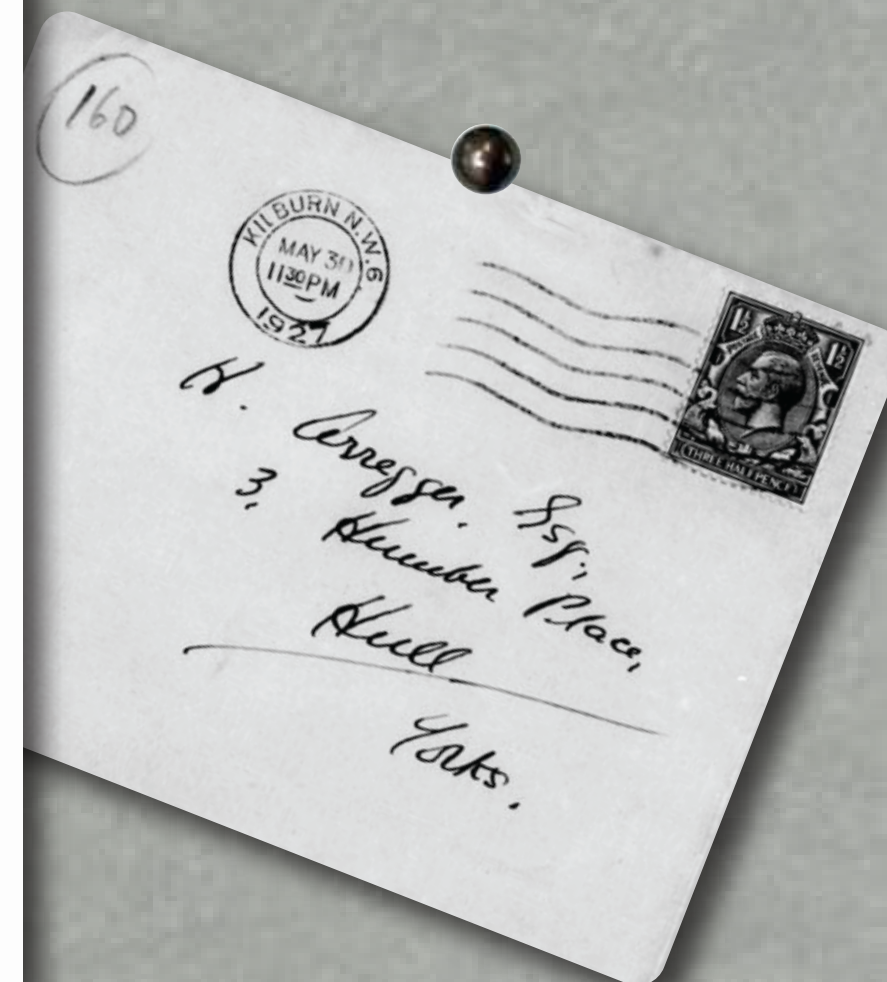 160
KILBURN N.W.6
MAY 30
11 30 PM
1927
1½ 1½
THREE HALFPENCE
H. Arregger. Esq.,
3, Humber Place,
Hull
Yorks.